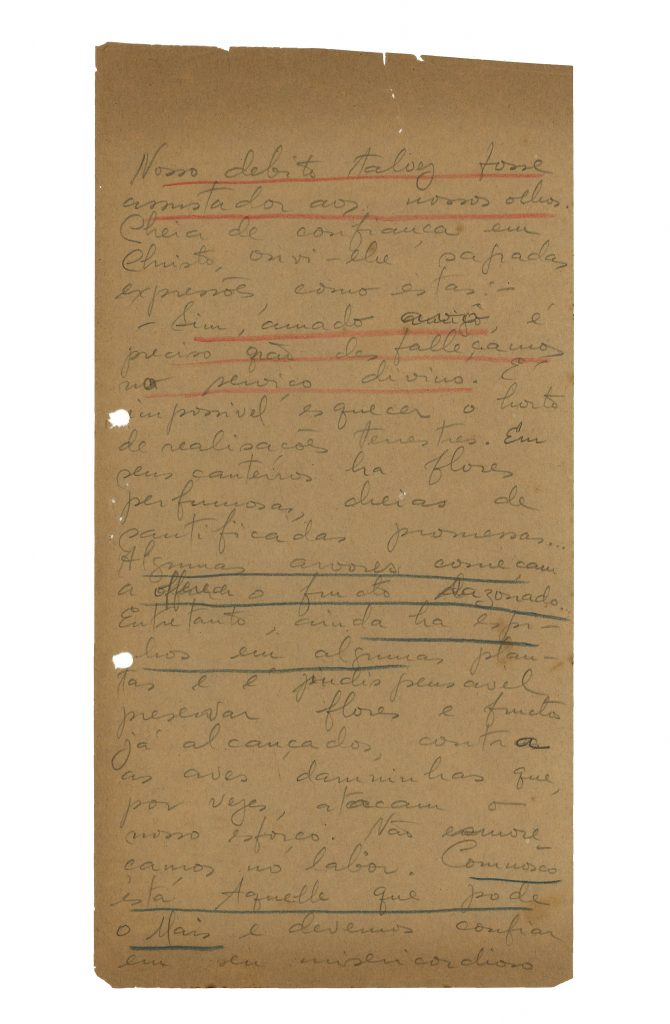 Nosso debito talvez fosse
assustador aos nossos olhos.
Cheia de confiança em
Christo, ouvi-lhe sagradas
expressões como estas: -
- Sim, amado amigo, é
preciso não desfalleçamos
no serviço divino. É
impossivel esquecer o horto
de realisações terrestres. Em
seus canteiros ha flores
perfumosas, cheias de
santificadas promessas...
Algumas arvores começam
a offerecer o fructo sazonado.
Entretanto, ainda ha espi-
nhos em algumas plan-
tas e é indispensavel
preservar flores e fructos
já alcançados, contra
as aves damninhas que,
por vezes, atacam o
nosso esforço. Não esmore
çamos no labor. Comnosco
está Aquelle que pode
o Mais e devemos confiar
em seu misericordioso